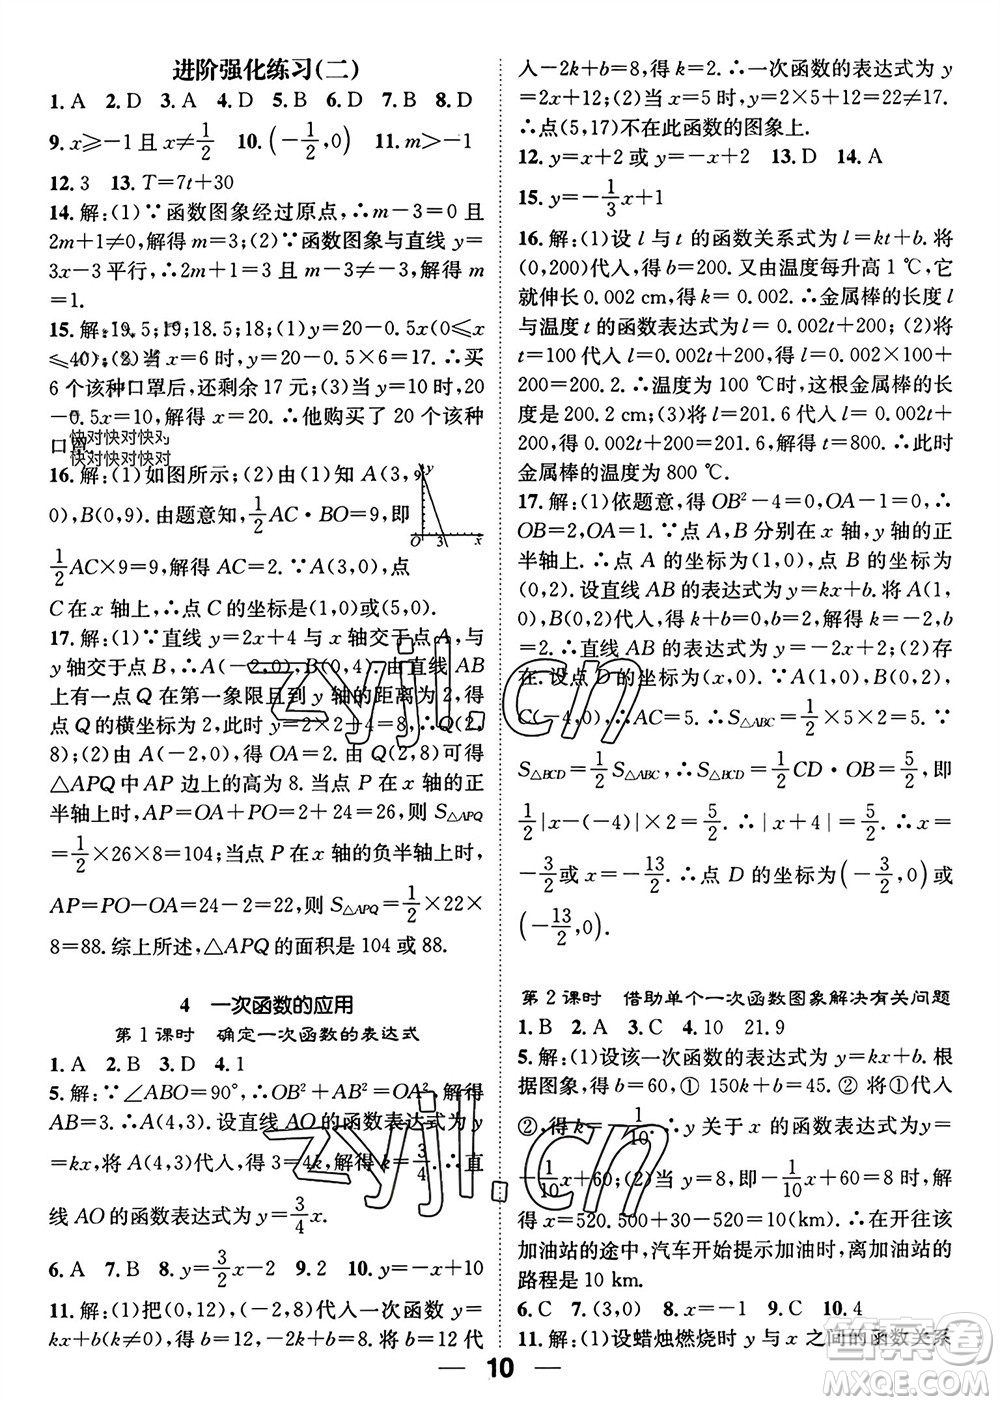 进阶强化练习(二)
1. A 2. D 3. A 4. D 5. B 6. D 7. B 8. D
9. x≥-1 且 x≠1/2 10. (-1/2,0) 11. m>-1
12. 3 13. T=7t+30
14. 解:(1)∵函数图象经过原点,∴m-3=0 且
2m+1≠0,解得 m=3;(2)∵函数图象与直线 y=
3x-3 平行,∴2m+1=3 且 m-3≠-3,解得 m
=1.
15. 解:19.5;19;18.5;(1)y=20-0.5x(0≤x
≤40);(2)当 x=6 时,y=20-0.5×6=17.∴买
6 个该种口罩后,还剩余 17 元;(3)当 y=10 时,20
-0.5x=10,解得 x=20.∴他购买了 20 个该种
口罩.
快对快对快对
快对快对快对
16. 解:(1)如图所示;(2)由(1)知 A(3,
0),B(0,9).由题意知,1/2AC·BO=9,即
1/2AC×9=9,解得 AC=2.又∵A(3,0),点
y
O 3 x
C 在 x 轴上,∴点 C 的坐标是(1,0)或(5,0).
17. 解:(1)∵直线 y=2x+4 与 x 轴交于点 A,与
y 轴交于点 B,∴A(-2,0),B(0,4).由直线 AB
上有一点 Q 在第一象限且到 y 轴的距离为 2,得
点 Q 的横坐标为 2,此时 y=2×2+4=8,∴Q(2,
8);(2)由 A(-2,0),得 OA=2.由 Q(2,8)可得
△APQ 中 AP 边上的高为 8.当点 P 在 x 轴的正
半轴上时,AP=OA+PO=2+24=26,则 S△APQ
=1/2×26×8=104;当点 P 在 x 轴的负半轴上时,
AP=PO-OA=24-2=22,则 S△APQ=1/2×22×
8=88.综上所述,△APQ 的面积是 104 或 88.
4 一次函数的应用
第 1 课时 确定一次函数的表达式
1. A 2. B 3. D 4. 1
5. 解:∵∠ABO=90°,∴OB²+AB²=OA²,解得
AB=3.∴A(4,3).设直线 AO 的函数表达式为 y
=kx,将 A(4,3)代入,得 3=4k,解得 k=3/4.∴直
线 AO 的函数表达式为 y=3/4x.
6. A 7. D 8. y=3/2x-2 9. 2 10. y=-x+6
11. 解:(1)把(0,12),(-2,8)代入一次函数 y=
kx+b(k≠0),得 b=12,-2k+b=8.把 b=12 代
入-2k+b=8,得 k=2.∴一次函数的表达式为
y=2x+12;(2)当 x=5 时,y=2×5+12=22≠17.
∴点(5,17)不在此函数的图象上.
12. y=x+2 或 y=-x+2 13. D 14. A
15. y=-1/3x+1
16. 解:(1)设 l 与 t 的函数关系式为 l=kt+b.将
(0,200)代入,得 b=200.又由温度每升高 1 ℃,它
就伸长 0.002 cm,得 k=0.002.∴金属棒的长度 l
与温度 t 的函数表达式为 l=0.002t+200;(2)将
t=100 代入 l=0.002t+200,得 l=0.002×100+
200=200.2.∴温度为 100 ℃时,这根金属棒的长
度是 200.2 cm;(3)将 l=201.6 代入 l=0.002t+
200,得 0.002t+200=201.6,解得 t=800.∴此时
金属棒的温度为 800 ℃.
17. 解:(1)依题意,得 OB²-4=0,OA-1=0,∴
OB=2,OA=1.∵点 A,B 分别在 x 轴,y 轴的正
半轴上,∴点 A 的坐标为(1,0),点 B 的坐标为
(0,2).设直线 AB 的表达式为 y=kx+b.将 A(1,
0),B(0,2)代入,得 k+b=0,b=2,解得 k=-2,b
=2.∴直线 AB 的表达式为 y=-2x+2;(2)存
在.设点 D 的坐标为(x,0).∵A(1,0),B(0,2),
C(-4,0),∴AC=5.∴S△ABC=1/2×5×2=5.∵
S△BCD=1/2S△ABC,∴S△BCD=1/2CD·OB=5/2,即
1/2|x-(-4)|×2=5/2.∴|x+4|=5/2.∴x=
-3/2或 x=-13/2.∴点 D 的坐标为(-3/2,0)或
(-13/2,0).
第 2 课时 借助单个一次函数图象解决有关问题
1. B 2. D 3. C 4. 10 21.9
5. 解:(1)设该一次函数的表达式为 y=kx+b.根
据图象,得 b=60,① 150k+b=45.② 将①代入
②,得 k=-1/10.∴y 关于 x 的函数表达式为 y=
-1/10x+60;(2)当 y=8 时,-1/10x+60=8,解
得 x=520.500+30-520=10(km).∴在开往该
加油站的途中,汽车开始提示加油时,离加油站的
路程是 10 km.
6. C 7. (3,0) 8. x=-1 9. C 10. 4
11. 解:(1)设蜡烛燃烧时 y 与 x 之间的函数关系
10
zyjl.cn
zyjl.cn
答案圈
MXQE.COM